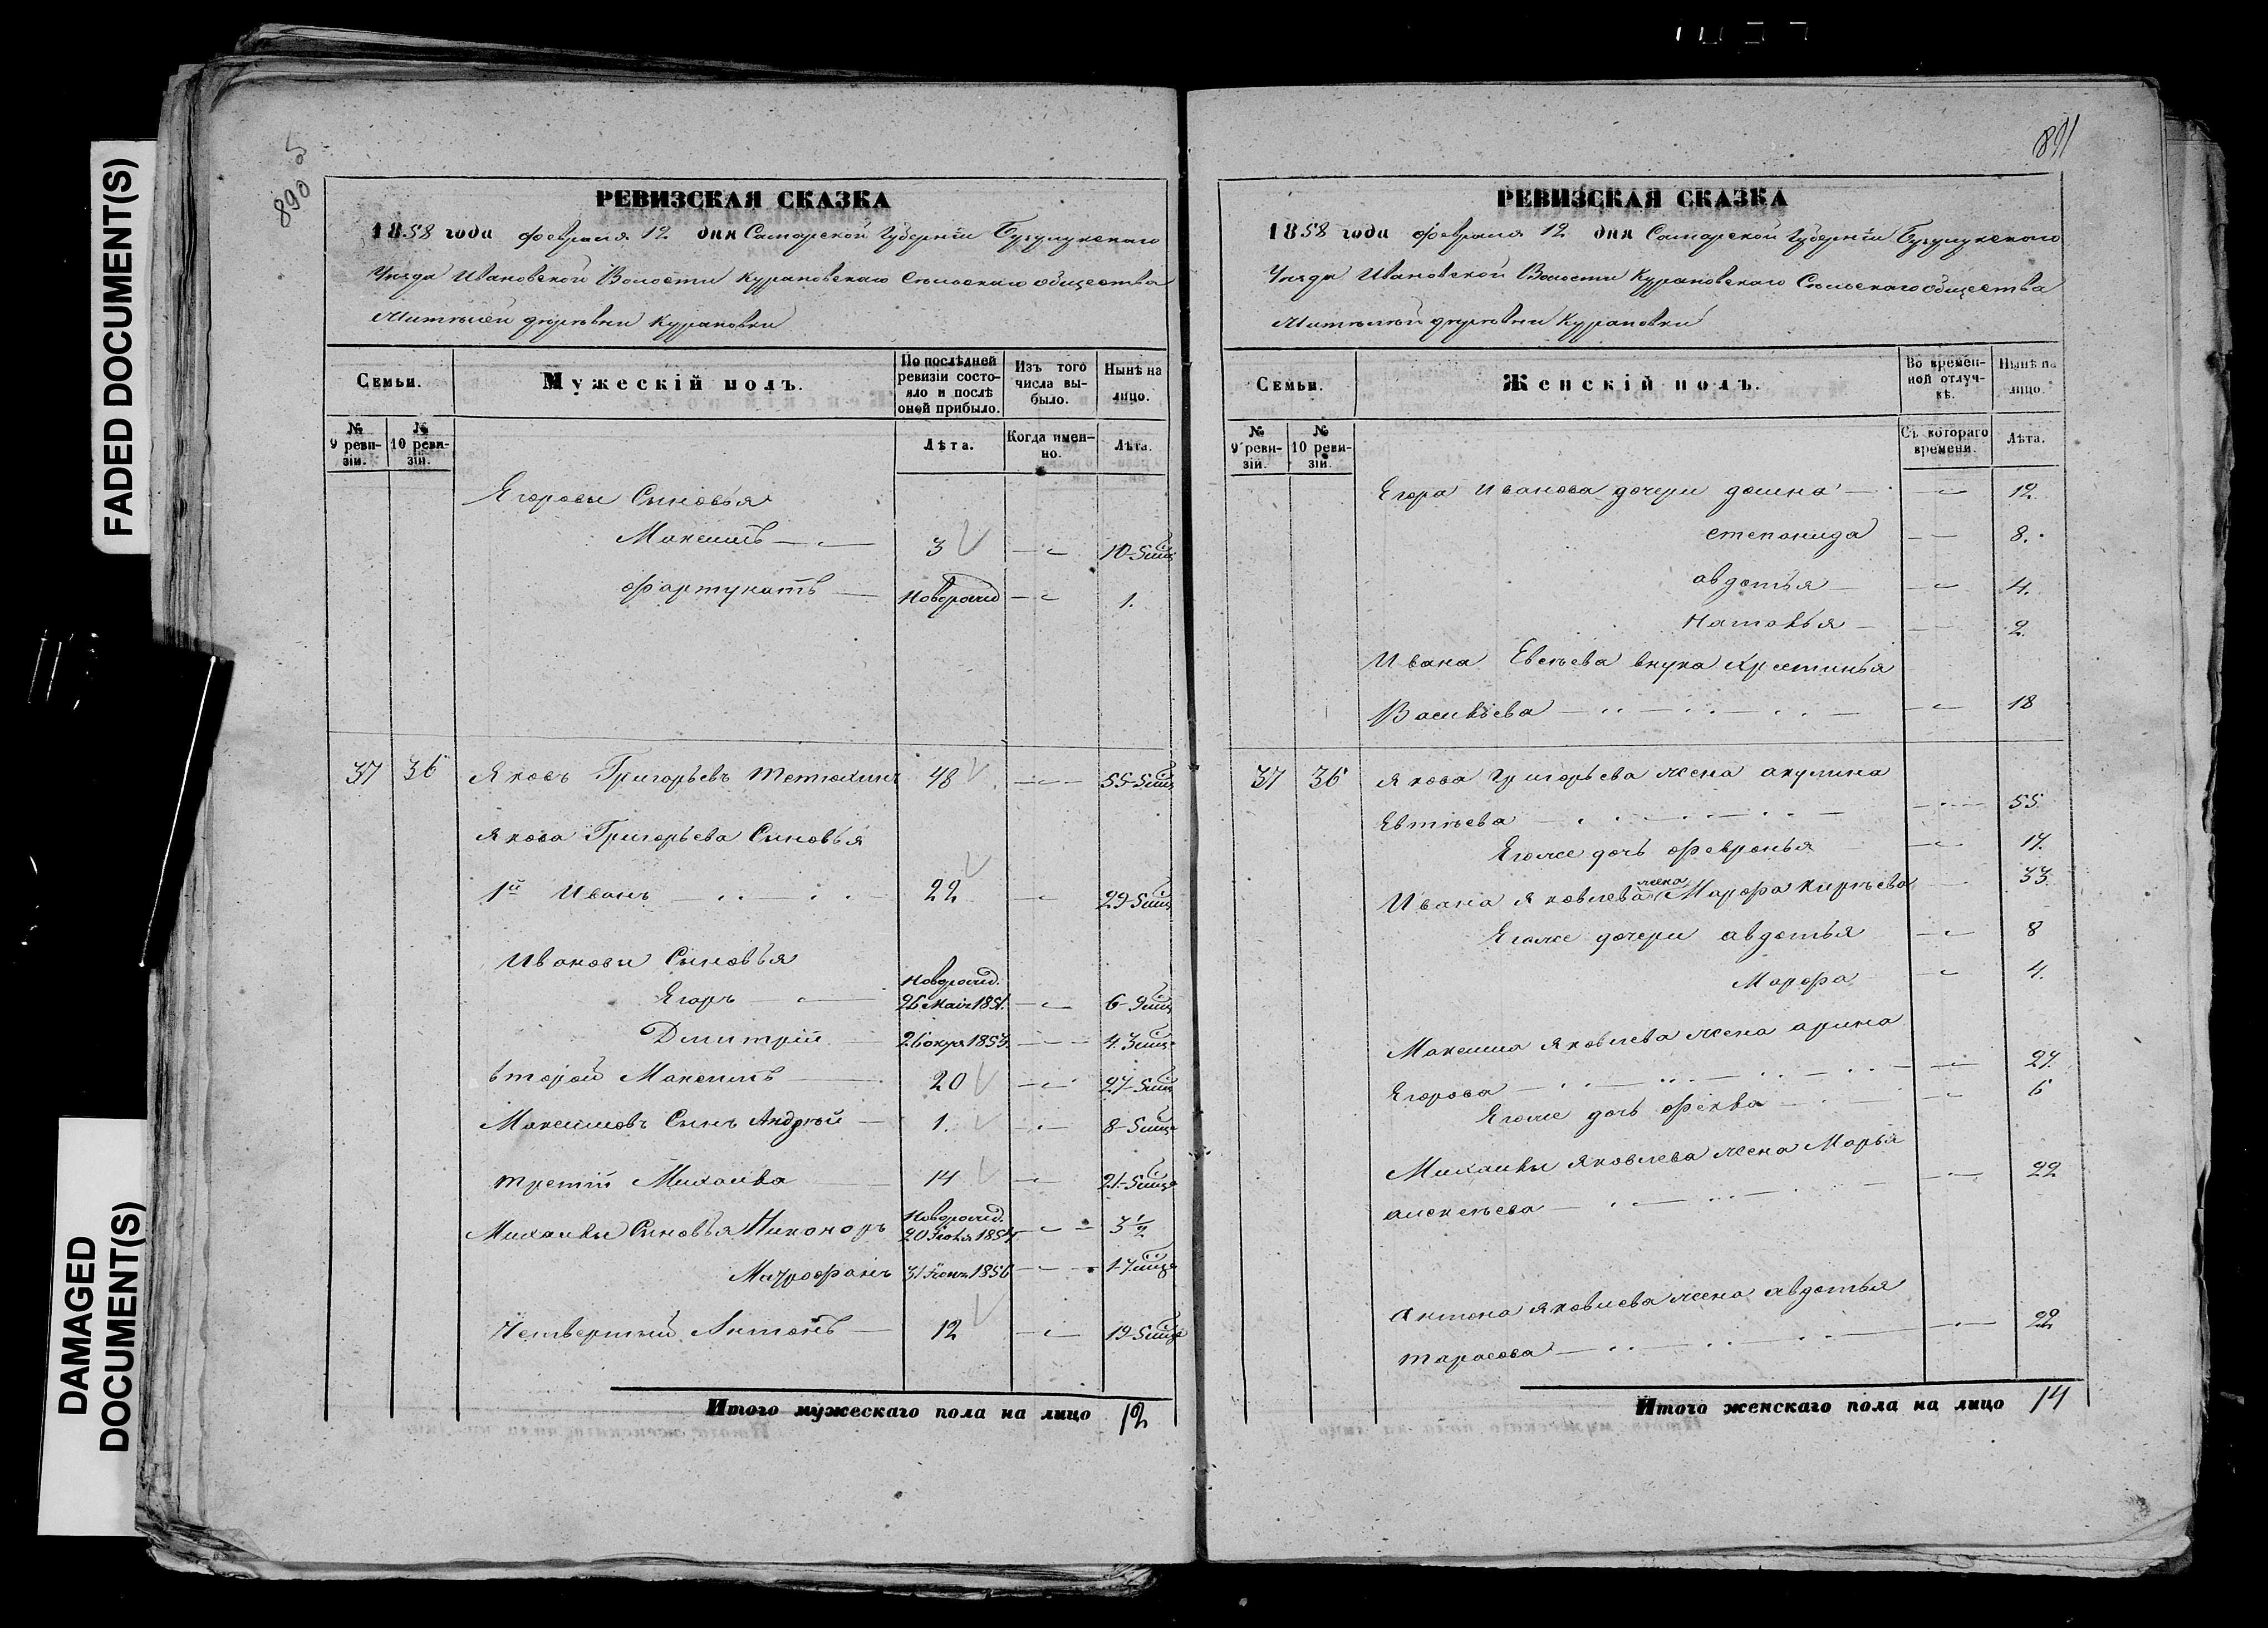 FADED DOCUMENT(S)
DAMAGED
DOCUMENT(S)
890
РЕВИЗСКАЯ СКАЗКА
1858 года февраля 12 дня Самарской Губернiи Бузулукскаго
Уезда Ивановской Волости Курановскаго Сельскаго общества
деревни Курановки
Семьи.
Мужескій полъ.
По послѣдней ревизіи состояло и послѣ оной прибыло.
Изъ того числа выбыло.
Нынѣ на лицо.
№ 9 ревизіи.
№ 10 ревизіи.
Лѣта.
Когда именно.
Лѣта.
Егоровы Сыновья
Максимъ 3 10-5
Фартунатъ Новорожд 1.
37 36 Яковъ Григорьевъ Тетюхинъ 48 55-5
Якова Григорьева Сыновья
1й Иванъ 22 29-5
Ивановы Сыновья
Новорожд.
Егоръ 26 мая 1851. 6-9
Дмитрій 4.3
второй Максимъ 20 27-5
Максимовъ Сынъ Андрей 1. 8-5
третій Михаила 14 21-5
Новорожд.
Михаилы Сыновья Никоноръ 3 1/2
Митрофанъ 1-7
Четвертый Антонъ 12 19-5
Итого мужескаго пола на лицо 12
891
РЕВИЗСКАЯ СКАЗКА
1858 года февраля 12 дня Самарской Губернiи Бузулукскаго
Уезда Ивановской Волости Курановскаго Сельскаго общества
деревни Курановки
Семьи.
Женскій полъ.
Во временной отлучкѣ.
Нынѣ на лицо.
№ 9 ревизіи.
№ 10 ревизіи.
Съ котораго времени.
Лѣта.
Егора Иванова дочери домна 12.
степонида 8.
авдотья 4.
Наталья 2.
Ивана Евсѣева внука Крестинья
Васильева 18
37 36 Якова Григорьева жена акулина
Евтѣева 55
Егоже дочь Февронья 17.
Ивана Яковлева жена Марфа Кирѣева 33
Егоже дочери авдотья 8
Марфа 4.
Максима Яковлева жена арина
Егорова 27.
Егоже дочь Фекла 6
Михаилы Яковлева жена Марья
алексѣева 22
Антона Яковлева жена авдотья
тарасова 22
Итого женскаго пола на лицо 14